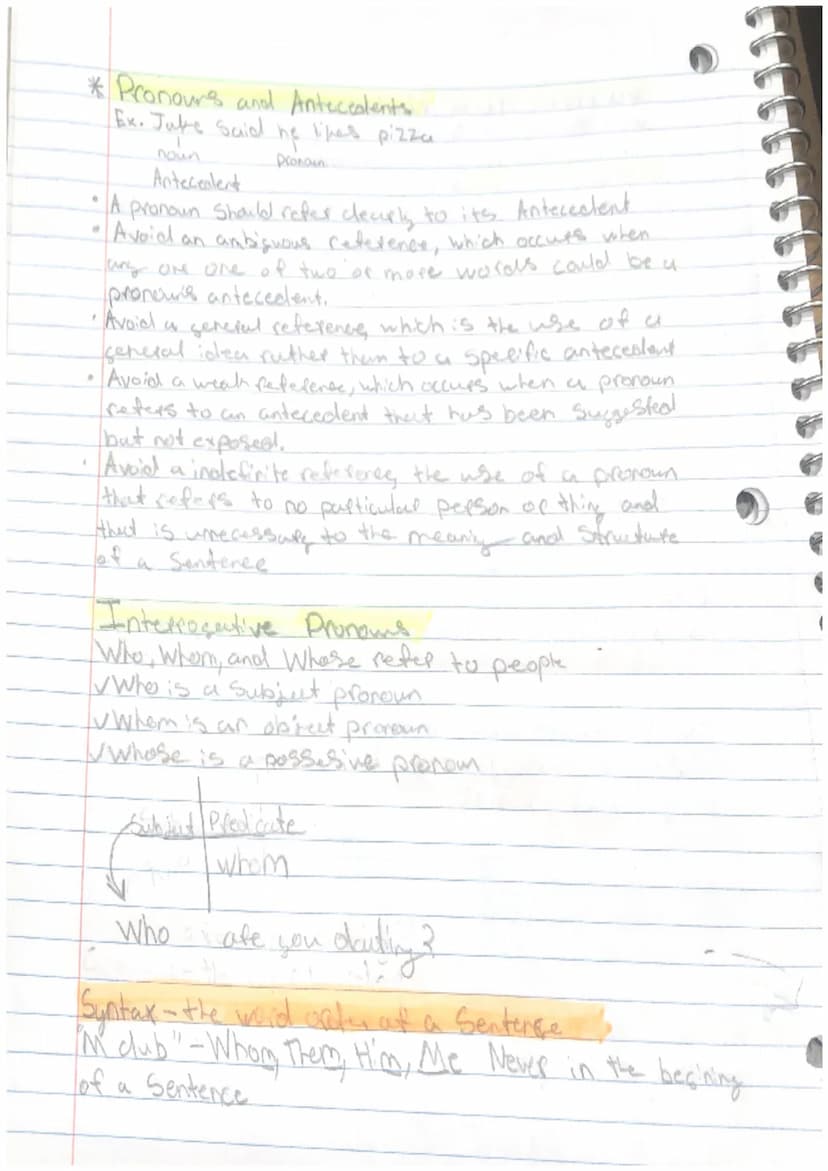 * Pronouns and Antecedents
Ex. Jake said he likes pizza
noun pronoun
Antecedent
• A pronoun should refer clearly to its Antecedent
• Avoid an ambiguous reference, which occurs when
any one one of two or more words could be a
pronouns antecedent.
• Avoid a general reference, which is the use of a
general idea ruther than to a speific antecedent
• Avoid a weak reference, which occurs when a pronoun
refers to an antecedent that has been suggested
but not exposed.
• Avoid a indefinite reference, the use of a pronoun
that refers to no particular person or thing and
that is unnecessary to the meaning and structure
of a sentence
Interrogative Pronouns
Who, Whom, and Whose refer to people
√ Who is a subject pronoun
√ Whom is an object pronoun
√ Whose is a possesive pronoun
Subject | Predicate
whom
Who are you dating?
Syntax - the word order of a sentence
"M club" - Whom, Them, Him, Me Never in the begining
of a sentence